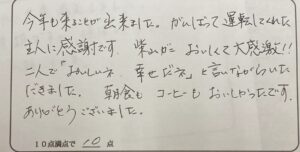 今年も来ることが出来ました。がんばって運転してくれた
主人に感謝です おいしくて大感激!!
二人で「おいしいネ 幸せだネ」と言いながらいた
だきました。朝食も コーヒーも おいしかったです。
ありがとうございました。
10点満点で 10 点